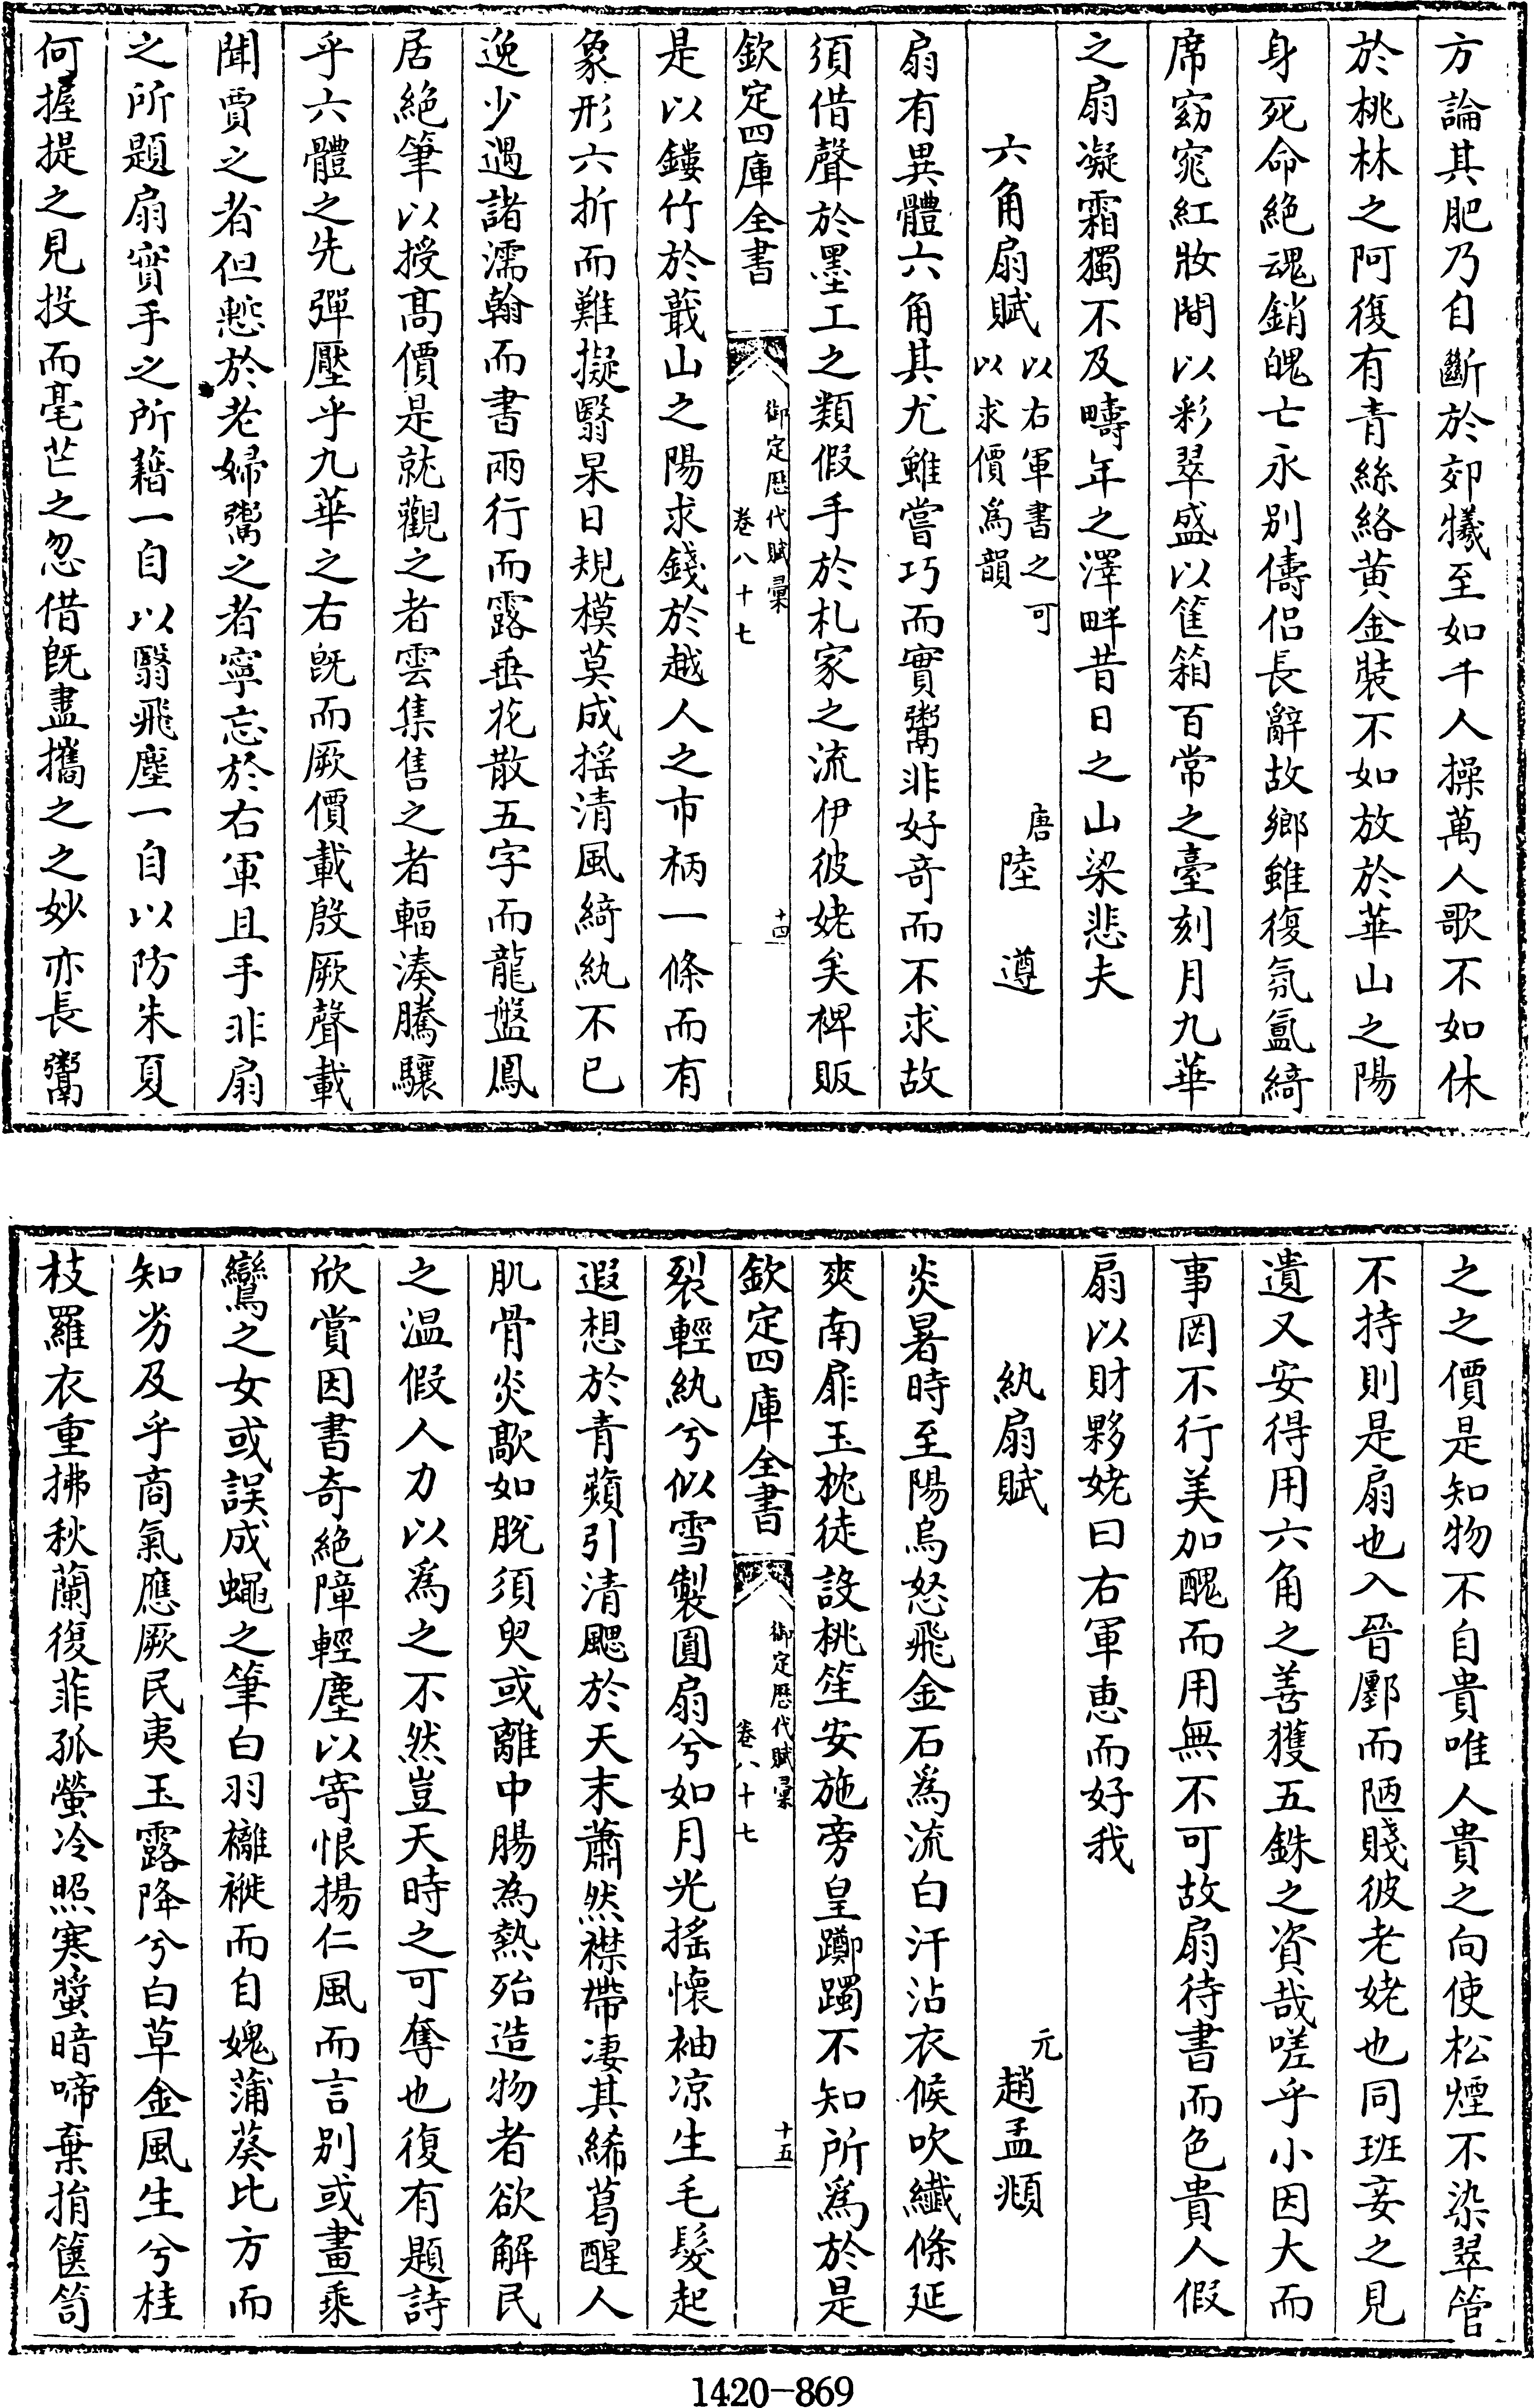 方論其肥乃自斷於郊犧至如千人操萬人歌不如休
於桃林之阿復有青絲絡黄金裝不如放於華山之陽
身死命絶魂銷魄亡永别儔侣長辭故鄉雖復氛氲綺
席窈窕紅妝間以彩翠盛以筐箱百常之臺刻月九華
之扇凝霜獨不及疇年之澤畔昔日之山梁悲夫
六角扇賦 以右軍書之可以求價爲韻 唐 陸遵
扇有異體六角其尤雖嘗巧而實鬻非好奇而不求故
須借聲於墨工之類假手於札家之流伊彼姥矣裨販
欽定四庫全書 御定歴代賦彚 卷八十七 十四
是以鏤竹於蕺山之陽求錢於越人之市柄一條而有
象形六折而難擬翳杲日規模莫成摇清風綺紈不已
逸少遇諸濡翰而書兩行而露垂花散五字而龍盤鳳
居絶筆以授髙價是就觀之者雲集售之者輻湊騰驤
乎六體之先彈壓乎九華之右旣而厥價載殷厥聲載
聞賈之者但慙於老婦鬻之者寧忘於右軍且手非扇
之所題扇實手之所藉一自以翳飛塵一自以防朱夏
何握提之見投而毫芒之忽借旣盡攜之之妙亦長鬻
之之價是知物不自貴唯人貴之向使松煙不染翠管
不持則是扇也入晉鄽而陋賤彼老姥也同班妾之見
遺又安得用六角之善獲五銖之資哉嗟乎小因大而
事罔不行美加醜而用無不可故扇待書而色貴人假
扇以財夥姥曰右軍恵而好我
紈扇賦 元 趙孟頫
炎暑時至陽烏怒飛金石爲流白汗沾衣候吹纎絛延
爽南扉玉枕徒設桃笙安施旁皇躑躅不知所爲於是
欽定四庫全書 御定歴代賦彚 卷八十七 十五
裂輕紈兮似雪製圓扇兮如月光摇懷袖凉生毛髮起
遐想於青蘋引清颸於天末蕭然襟帶凄其絺葛醒人
肌骨炎歊如脫須臾或離中腸為熱殆造物者欲解民
之温假人力以爲之不然豈天時之可奪也復有題詩
欣賞因書奇絶障輕塵以寄恨揚仁風而言别或畫乘
鸞之女或誤成蠅之筆白羽𦆑褷而自媿蒲葵比方而
知劣及乎商氣應厥民夷玉露降兮白草金風生兮桂
枝羅衣重拂秋蘭復菲孤螢冷照寒螿暗啼棄捐篋笥
1420-869